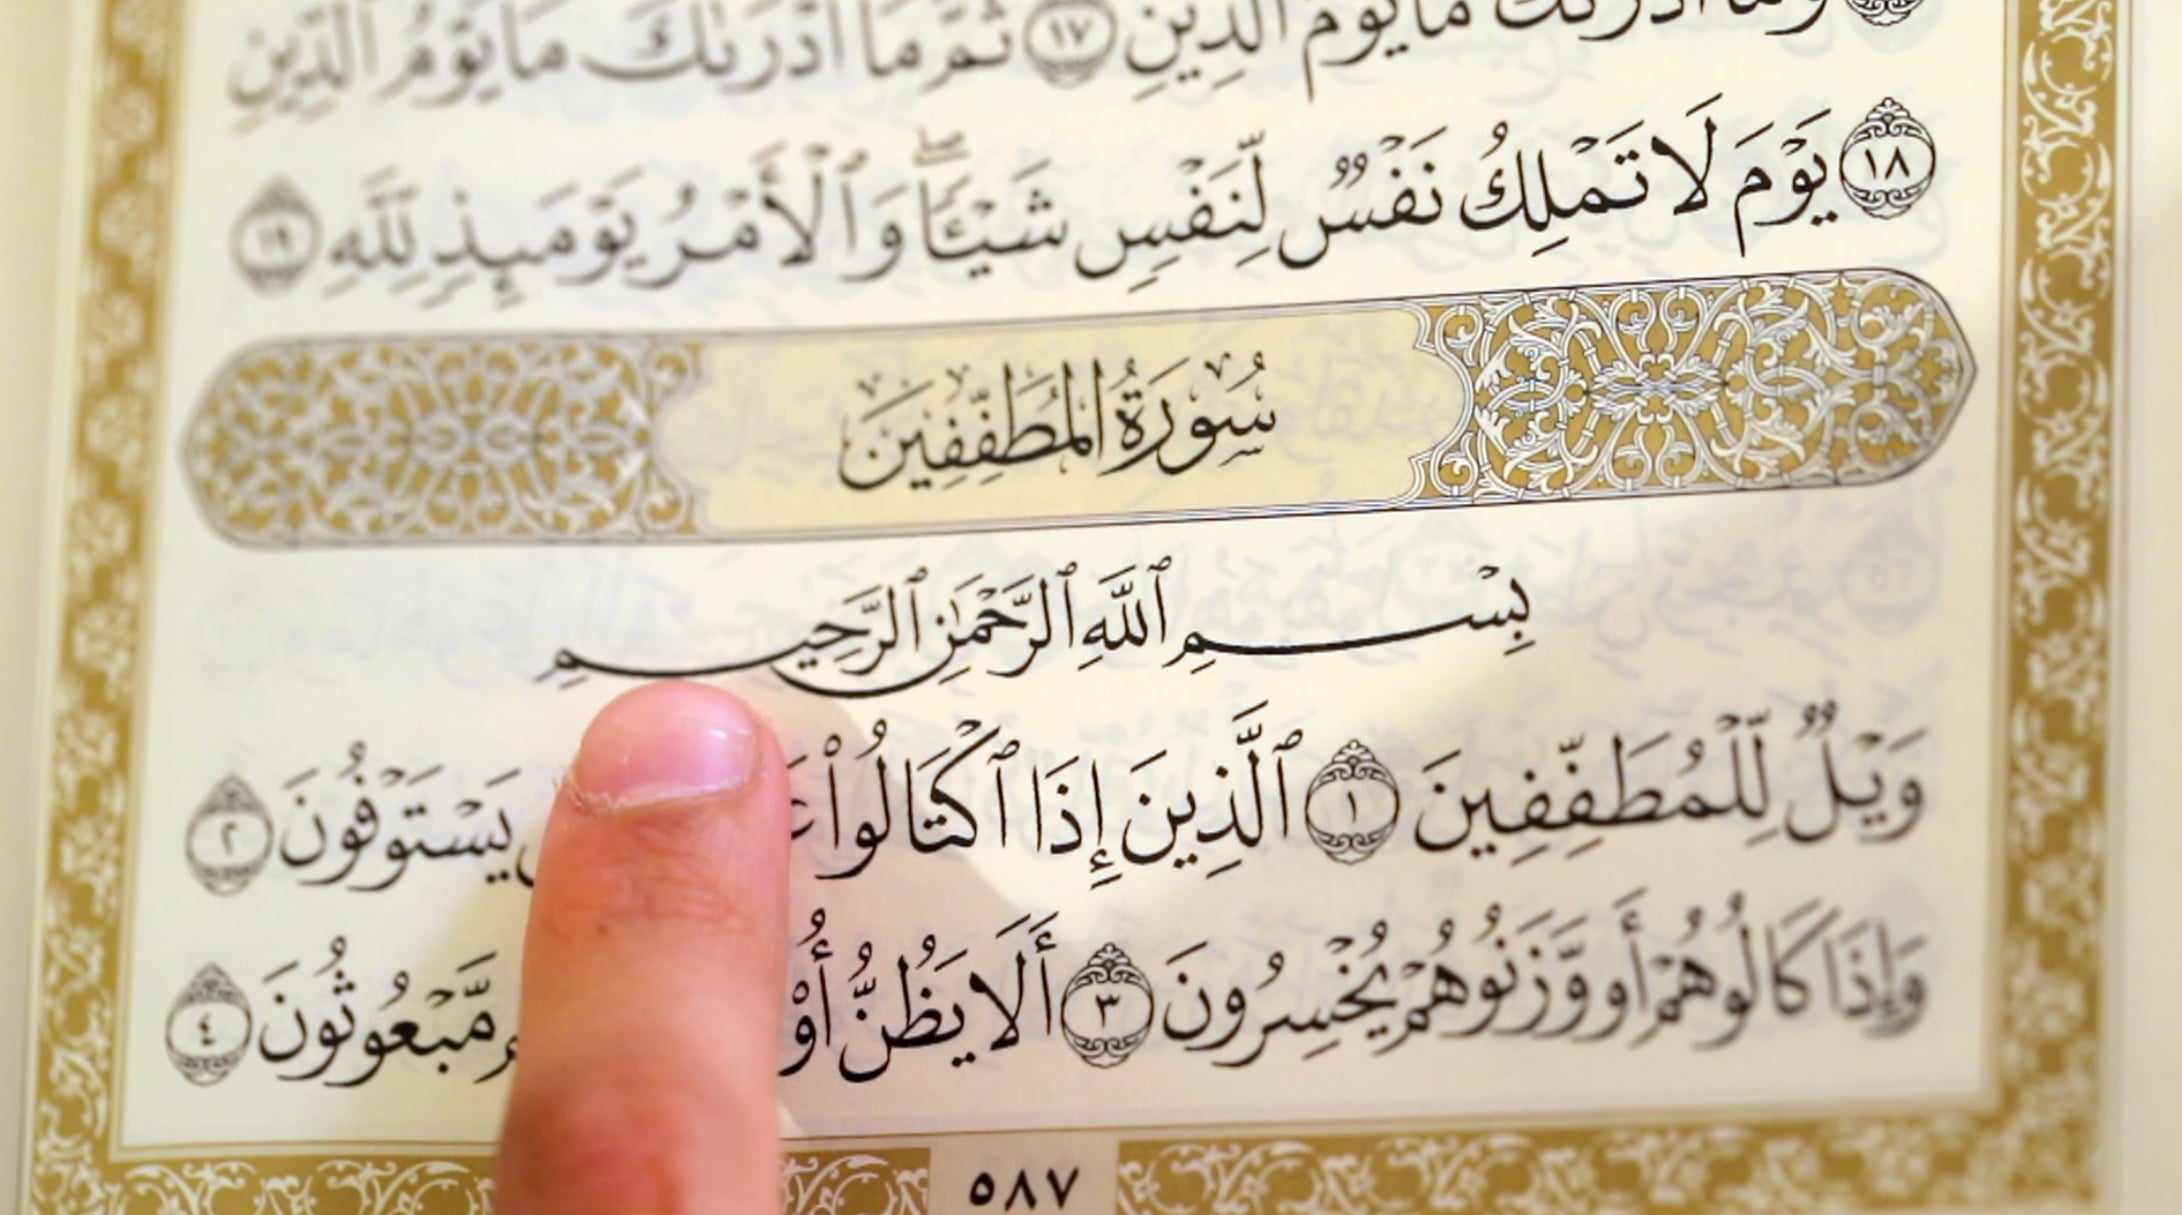 وَمَا أَدْرَىٰكَ مَا يَوْمُ ٱلدِّينِ ١٧ ثُمَّ مَا أَدْرَىٰكَ مَا يَوْمُ ٱلدِّينِ
١٨ يَوْمَ لَا تَمْلِكُ نَفْسٌ لِّنَفْسٍ شَيْـًٔا ۖ وَٱلْأَمْرُ يَوْمَئِذٍ لِّلَّهِ ١٩
سُورَةُ المُطَفِّفِينَ
بِسْمِ ٱللَّهِ ٱلرَّحْمَٰنِ ٱلرَّحِيمِ
وَيْلٌ لِّلْمُطَفِّفِينَ ١ ٱلَّذِينَ إِذَا ٱكْتَالُوا۟ يَسْتَوْفُونَ ٢
وَإِذَا كَالُوهُمْ أَو وَّزَنُوهُمْ يُخْسِرُونَ ٣ أَلَا يَظُنُّ مَّبْعُوثُونَ ٤
٥٨٧